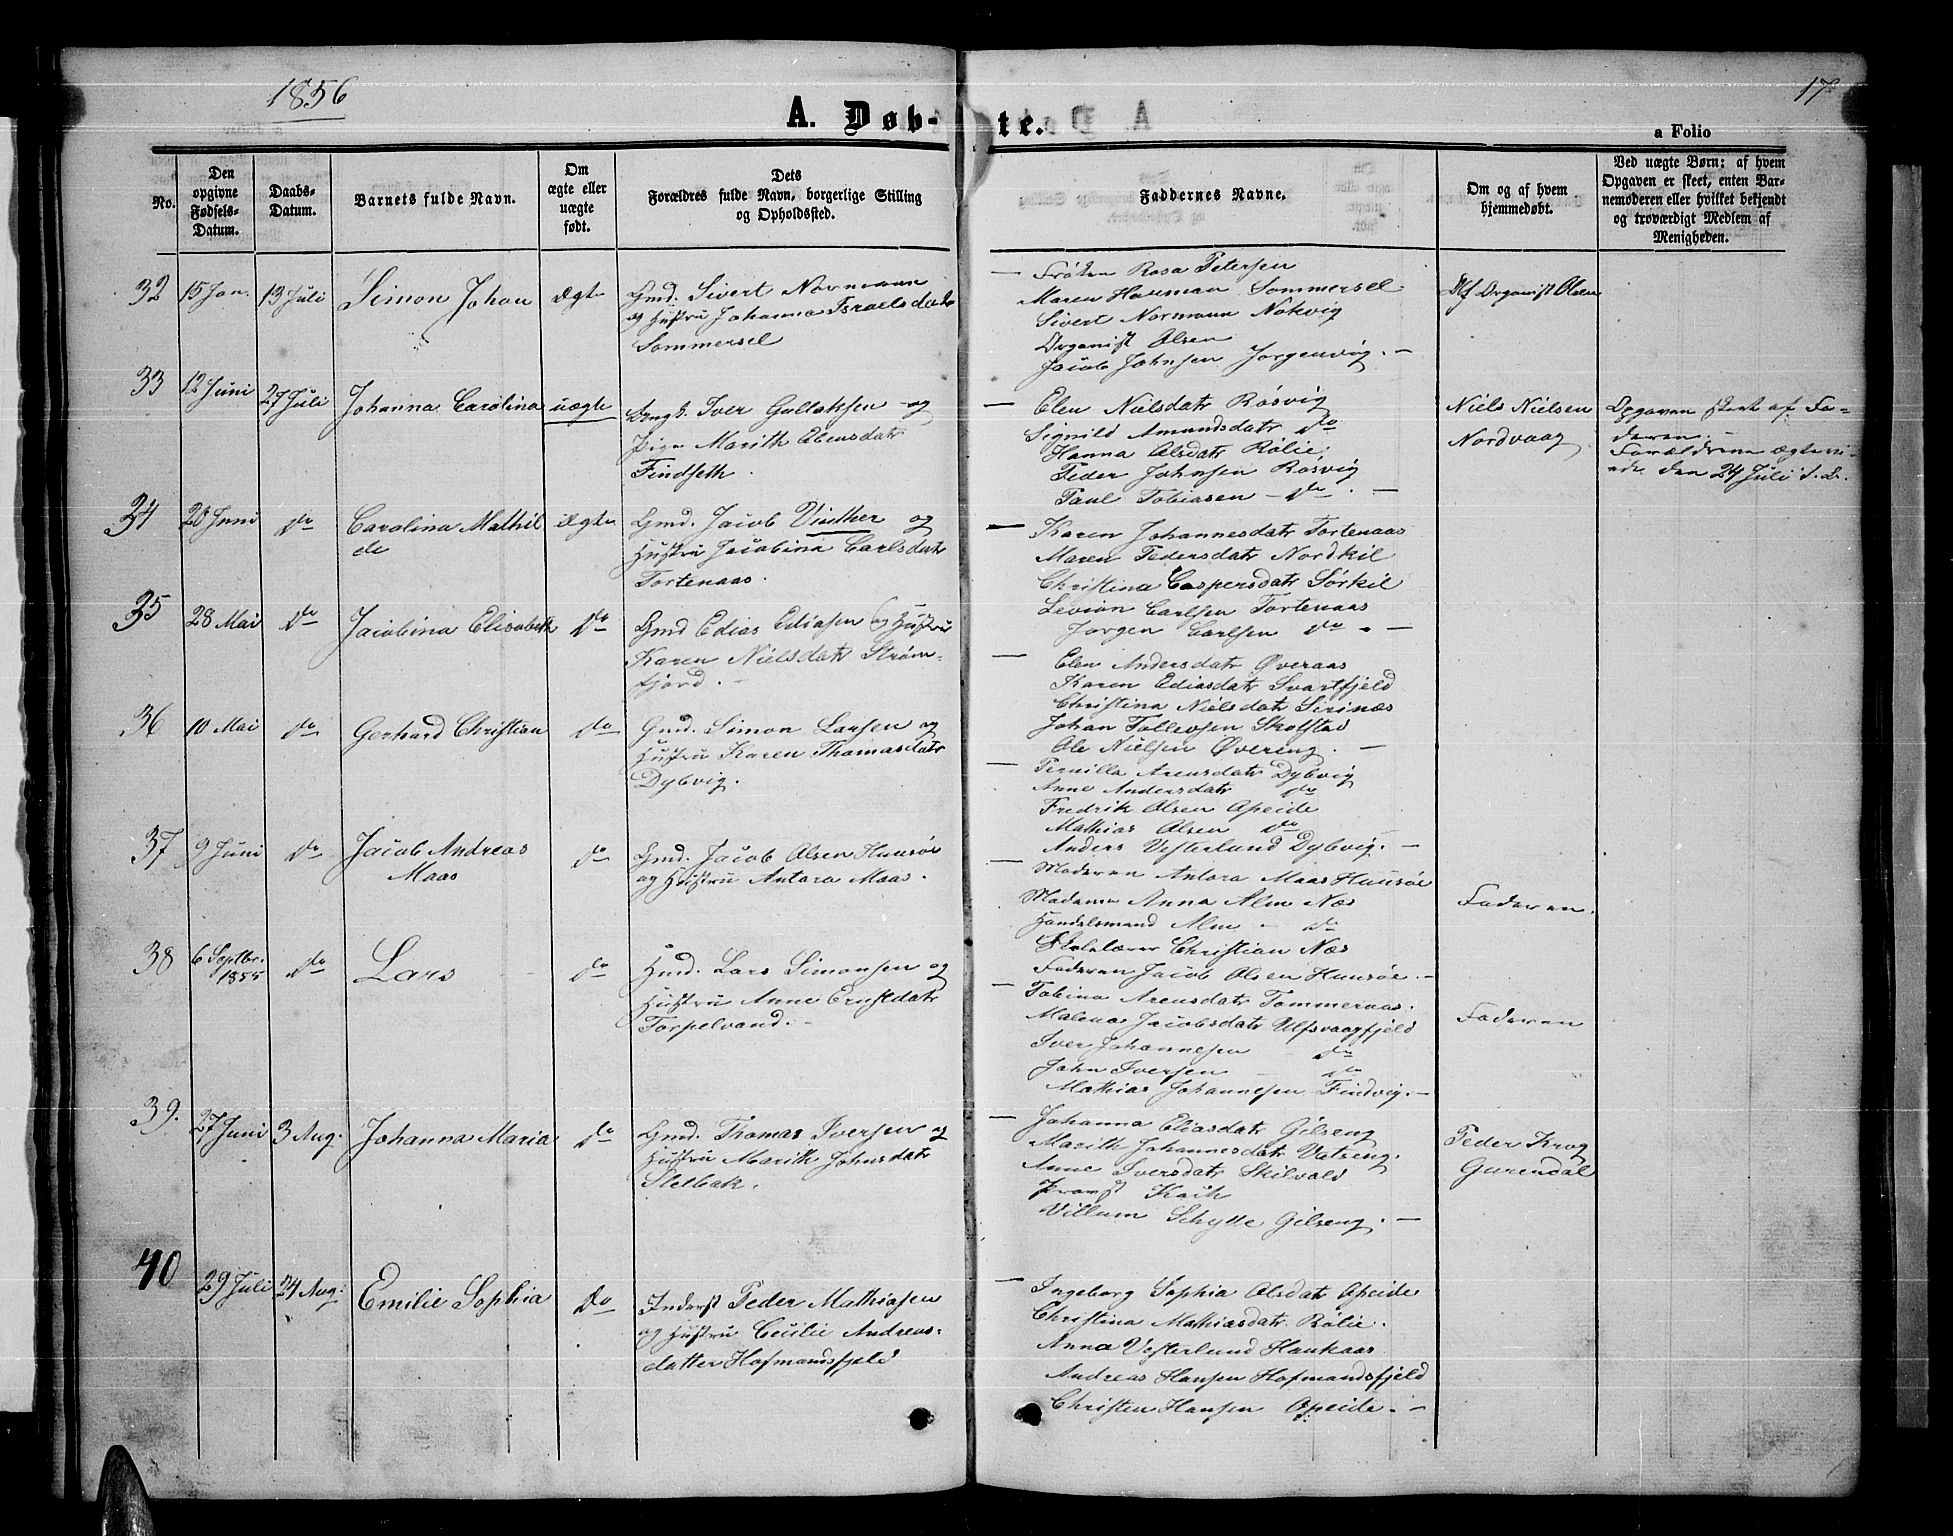 1856
17.
A. Døbte.
a Folio
No.
Den opgivne Fødsels-Datum.
Daabs-Datum.
Barnets fulde Navn.
Om ægte eller uægte født.
Dets Forældres fulde Navn, borgerlige Stilling og Opholdssted.
Faddernes Navne.
Om og af hvem hjemmedøbt.
Ved uægte Børn; af hvem Opgaven er skeet, enten Barnemoderen eller hvilket bekjendt og troværdigt Medlem af Menigheden.
32 15 Jan. 13 Juli Simon Johan ægte
Gmd. Sivert Normann
og Hustru Johanna Israelsdatr
Sommersel
— Frøken Rosa Petersen
Maren Normann Sommersel
Sivert Normann Nokvig
Organist Olsen
Jacob Johnsen Jorgenvig. —
Af Organist Olsen
33 12 Juni 27 Juli Johanna Carolina uægte
Ungk. Iver Gullaksen og
Pige Marith Ebensdatr
Findseth.
— Elen Nielsdatr Rösvig
Signild Amundsdatr do
Hanna Olsdatr Rölie.
Peder Johnsen Rösvig
Paul Tobiasen — do. —
Niels Nielsen
Nordvaag
Opgaven skeet af Fa-
deren. —
Forældrene ægtevi-
ede den 24 Juli s. A.
34 28 Juni do Carolina Mathil
de
ægte
Gmd. Jacob Vinther og
Hustru Jacobina Carlsdatr
Tortenaas.
— Karen Johannesdatr Tortenaas
Maren Pedersdatr Nordkil
Christina Caspersdatr Sörkil
Levion Carlsen Tortenaas
Jorgen Carlsen do. —
35 28 Mai do Jacobina Elisabeth do
Gmd Edias Ediasen og Hustru
Karen Nielsdatr Strøm-
fjord. —
— Elen Andersdatr Øveraas
Karen Ediasdatr Svartfjeld
Christina Nielsdatr Sirinæs
Johan Tollevsen Skolstad
Ole Nielsen Øvereng. —
36 10 Mai do Gerhard Christian do
Gmd. Simon Larsen og
Hustru Karen Thomasdatr
Dybvig.
— Pernilla Arensdatr Dybvig
Anne Andersdatr do
Fredrik Olsen Apeide
Mathias Olsen do
Anders Vesterlund Dybvig. —
37 9 Juni do Jacob Andreas
Maas
do
Gmd. Jacob Olsen Huusöe
og Hustru Antora Maas.
— Moderen Antora Maas Huusöe
Madame Anna Alm Næs
Handelsmand Alm - do
Skolelærer Christian Næs
Faderen Jacob Olsen Huusöe. —
Faderen.
38 6 Septbr. 1855 do Lars do
Gmd. Lars Simonsen og
Hustru Anne Ernstdatr
Torpelvand. —
— Tobina Arensdatr Tommeraas.
Malena Jacobsdatr Ulfsvaagfjeld
Iver Johannesen do
John Iversen - do
Mathias Johannesen Findvig. —
Faderen
39. 27 Juni 3 Aug. Johanna Maria do
Gmd. Thomas Iversen og
Hustru Marith Johnsdatr
Sletbak.
— Johanna Eliasdatr Gilseng
Marith Johannesdatr Vetseng.
Anne Iversdatr Skilvald
Provst Kaik
Villum Schytte Gilseng. —
Peder Krog
Gurendal
40 29 Juli 24 Aug: Emilie Sophia do
Inderst Peder Mathiasen
og Hustru Cecilie Andreas-
datter Hofmandsfjeld
— Ingeborg Sophia Olsdatr Apeide
Christina Mathiasdatr Rölie.
Anna Vesterlund Haukaas
Andreas Hansen Hofmandsfjeld
Christen Hansen Apeide. —